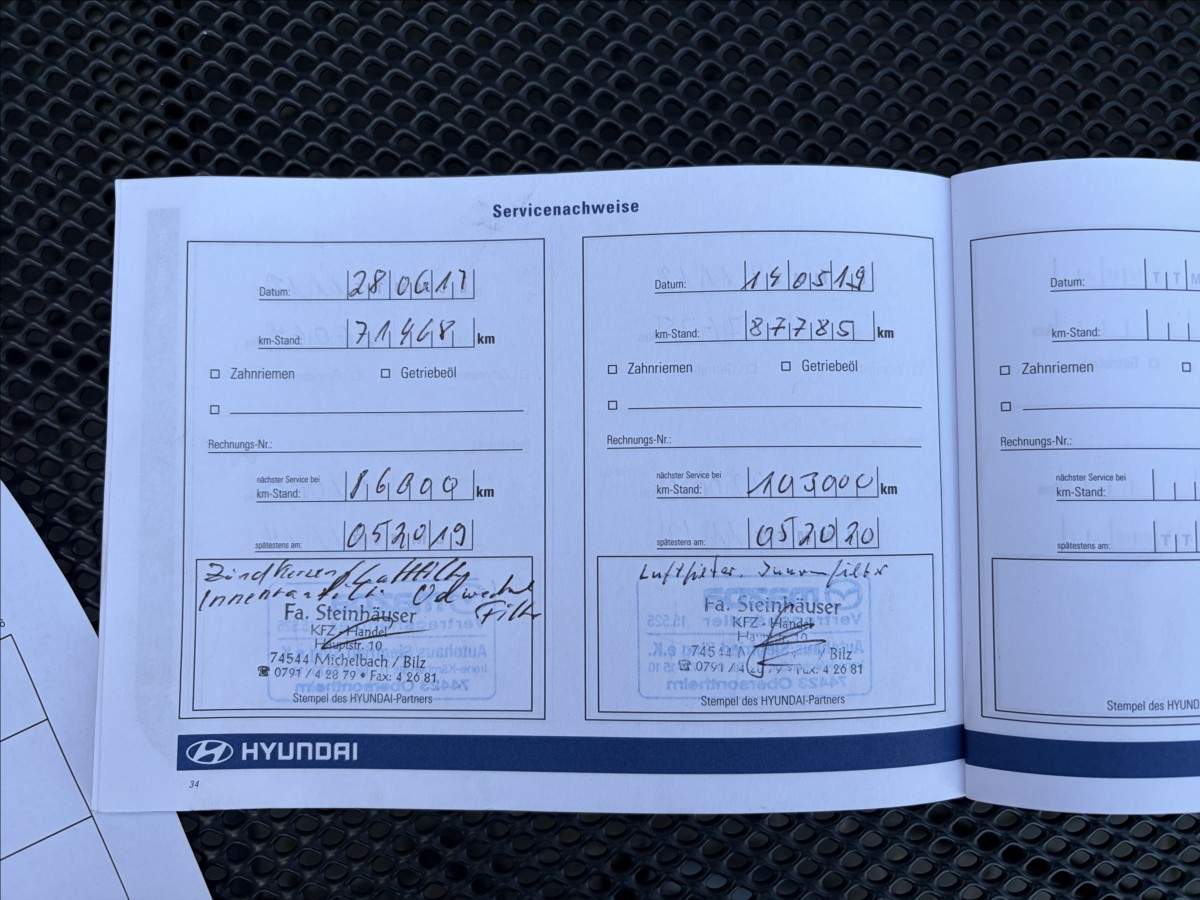 Servicenachweise
Datum: 280617
km-Stand: 71468 km
Zahnriemen Getriebeöl
Rechnungs-Nr.:
nächster Service bei
km-Stand: 86000 km
spätestens am: 052019
Zündkerzen Luftfilter
Innenraumfilter Ölwechsel
Filter
Fa. Steinhäuser
KFZ - Handel
Hauptstr. 10
74544 Michelbach / Bilz
☎ 0791 / 4 28 79 • Fax: 4 26 81
Stempel des HYUNDAI-Partners
Datum: 140519
km-Stand: 87785 km
Zahnriemen Getriebeöl
Rechnungs-Nr.:
nächster Service bei
km-Stand: 103000 km
spätestens am: 052020
Luftfilter, Innenfilter
Fa. Steinhäuser
KFZ - Handel
Hauptstr. 10
74544 Bilz
☎ 0791 / 4 Fax: 4 26 81
Stempel des HYUNDAI-Partners
Datum: T T M
km-Stand:
Zahnriemen
Rechnungs-Nr.:
nächster Service bei
km-Stand:
spätestens am: T T
Stempel des HYUNDA
HYUNDAI
34